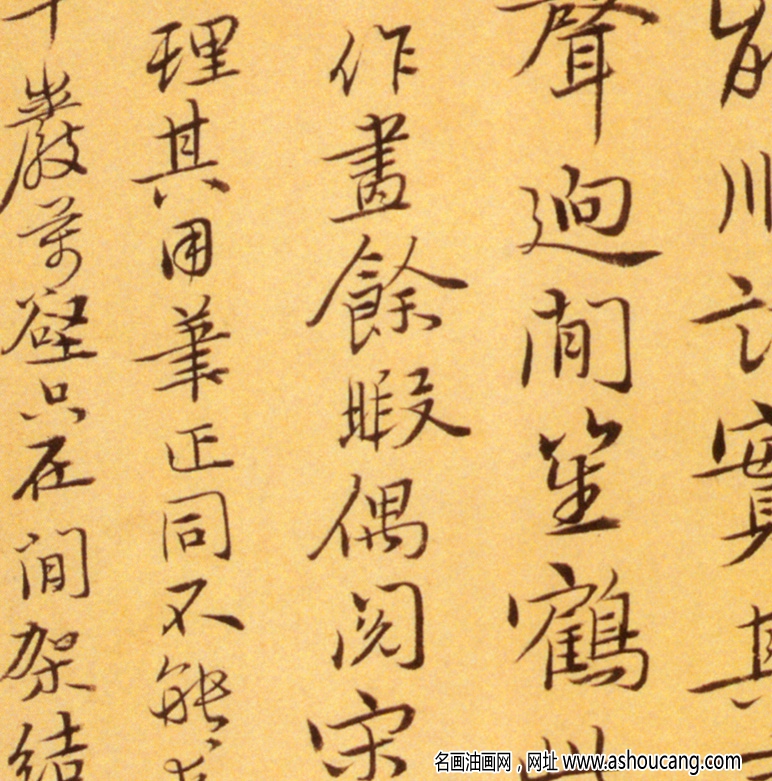 川 實其
聲迥閒笙鶴
作畫餘暇偶閱宋
理其用筆正同不能
巖萬壑只在間架結
名画油画网，网址 www.ashoucang.com